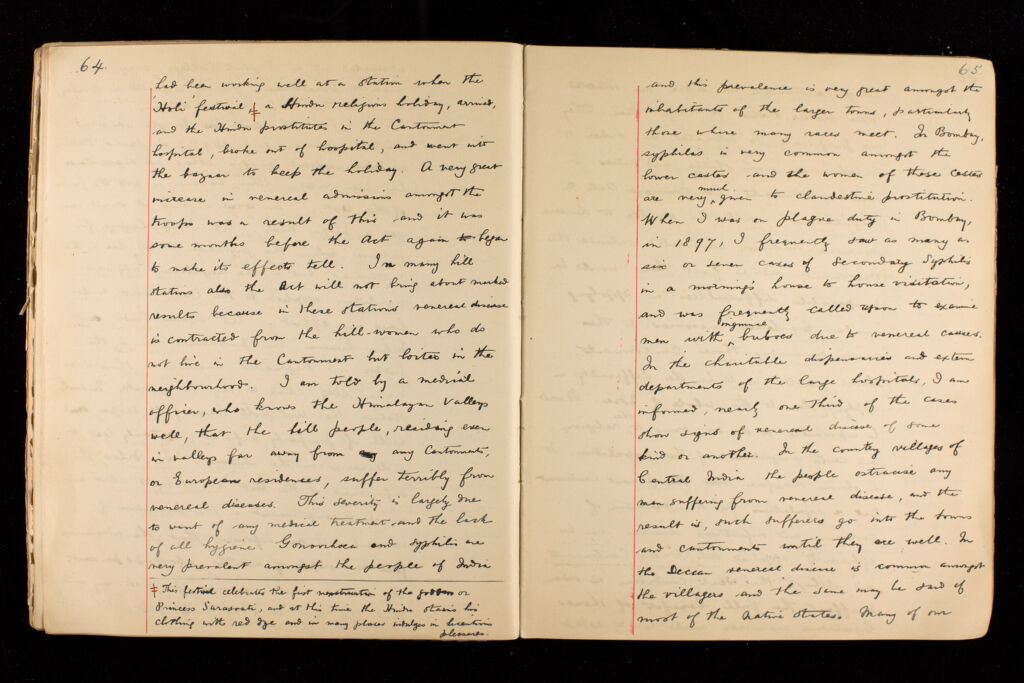 64.
had been working well at a station when the
'Holi' festival ‡ a Hindu religious holiday, arrived,
and the Hindu prostitutes in the Cantonment
hospital, broke out of hospital, and went into
the bazaar to keep the holiday. A very great
increase in venereal admissions amongst the
troops was a result of this and it was
some months before the Act again began
to make its effects tell. In many hill
stations also the Act will not bring about marked
results because in these stations venereal disease
is contracted from the hill-women who do
not live in the Cantonment but loiter in the
neighbourhood. I am told by a medical
officer, who knows the Himalayan Valleys
well, that the hill people, residing even
in valleys far away from any Cantonments,
or European residences, suffer terribly from
venereal diseases. This severity is largely due
to want of any medical treatment and the lack
of all hygiene. Gonorrhoea and syphilis are
very prevalent amongst the people of India
‡ This festival celebrates the first menstruation of the goddess or
Princess Sarasvati, and at this time the Hindu stains his
clothing with red dye and in many places indulges in licentious
pleasures.
65.
and this prevalence is very great amongst the
inhabitants of the larger towns, particularly
those where many races meet. In Bombay,
syphilis is very common amongst the
lower castes and the women of these castes
are very much given to clandestine prostitution.
When I was on plague duty in Bombay,
in 1897, I frequently saw as many as
six or seven cases of Secondary Syphilis
in a morning's house to house visitation,
and was frequently called upon to examine
men with inguinal buboes due to venereal causes.
In the charitable dispensaries and extern
departments of the large hospitals, I am
informed, nearly one third of the cases
show signs of venereal disease of some
kind or another. In the country villages of
Central India the people ostracise any
man suffering from venereal disease, and the
result is, such sufferers go into the towns
and cantonments until they are well. In
the Deccan venereal disease is common amongst
the villagers and the same may be said of
most of the Native States. Many of our